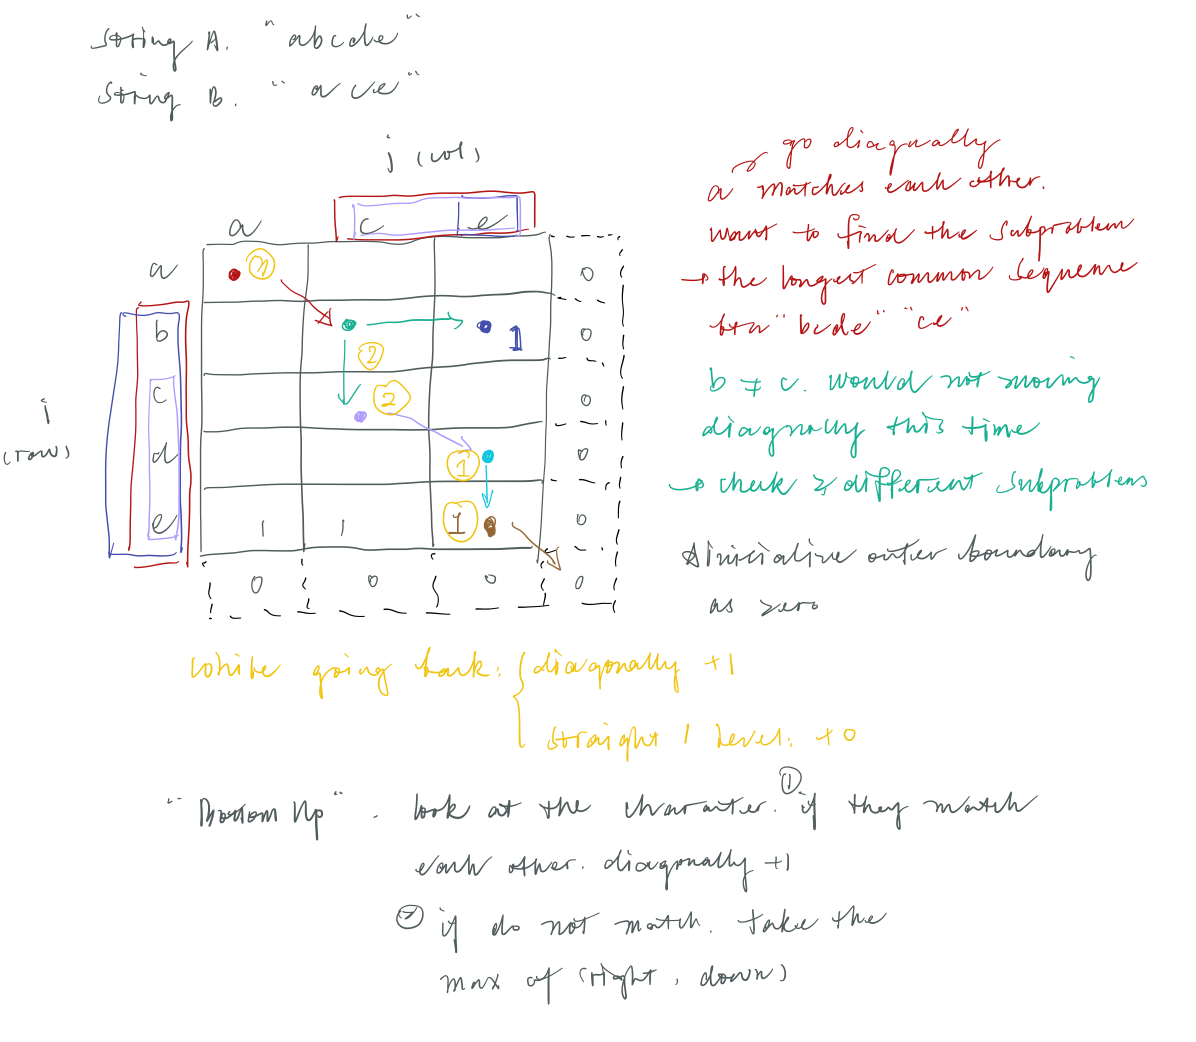 String A. "abcde"
String B. "ace"
j (col)
a c e
a 3 0
b 1 0
2
c 2 0
i
(row)
d 1 0
e 1 1 1 0
0 0 0 0
go diagnally
a matches each other.
want to find the subproblem
→ the longest common sequence
btn "bcde" "ce"
b ≠ c. would not moving
diagnally this time
→ check 2 different subproblems
initialize outer boundary
as zero
while going back: { diagonally +1
straight 1 level: +0
"Bottom Up". look at the character. ① if they match
each other. diagonally +1
② if do not match. take the
max of (right, down)